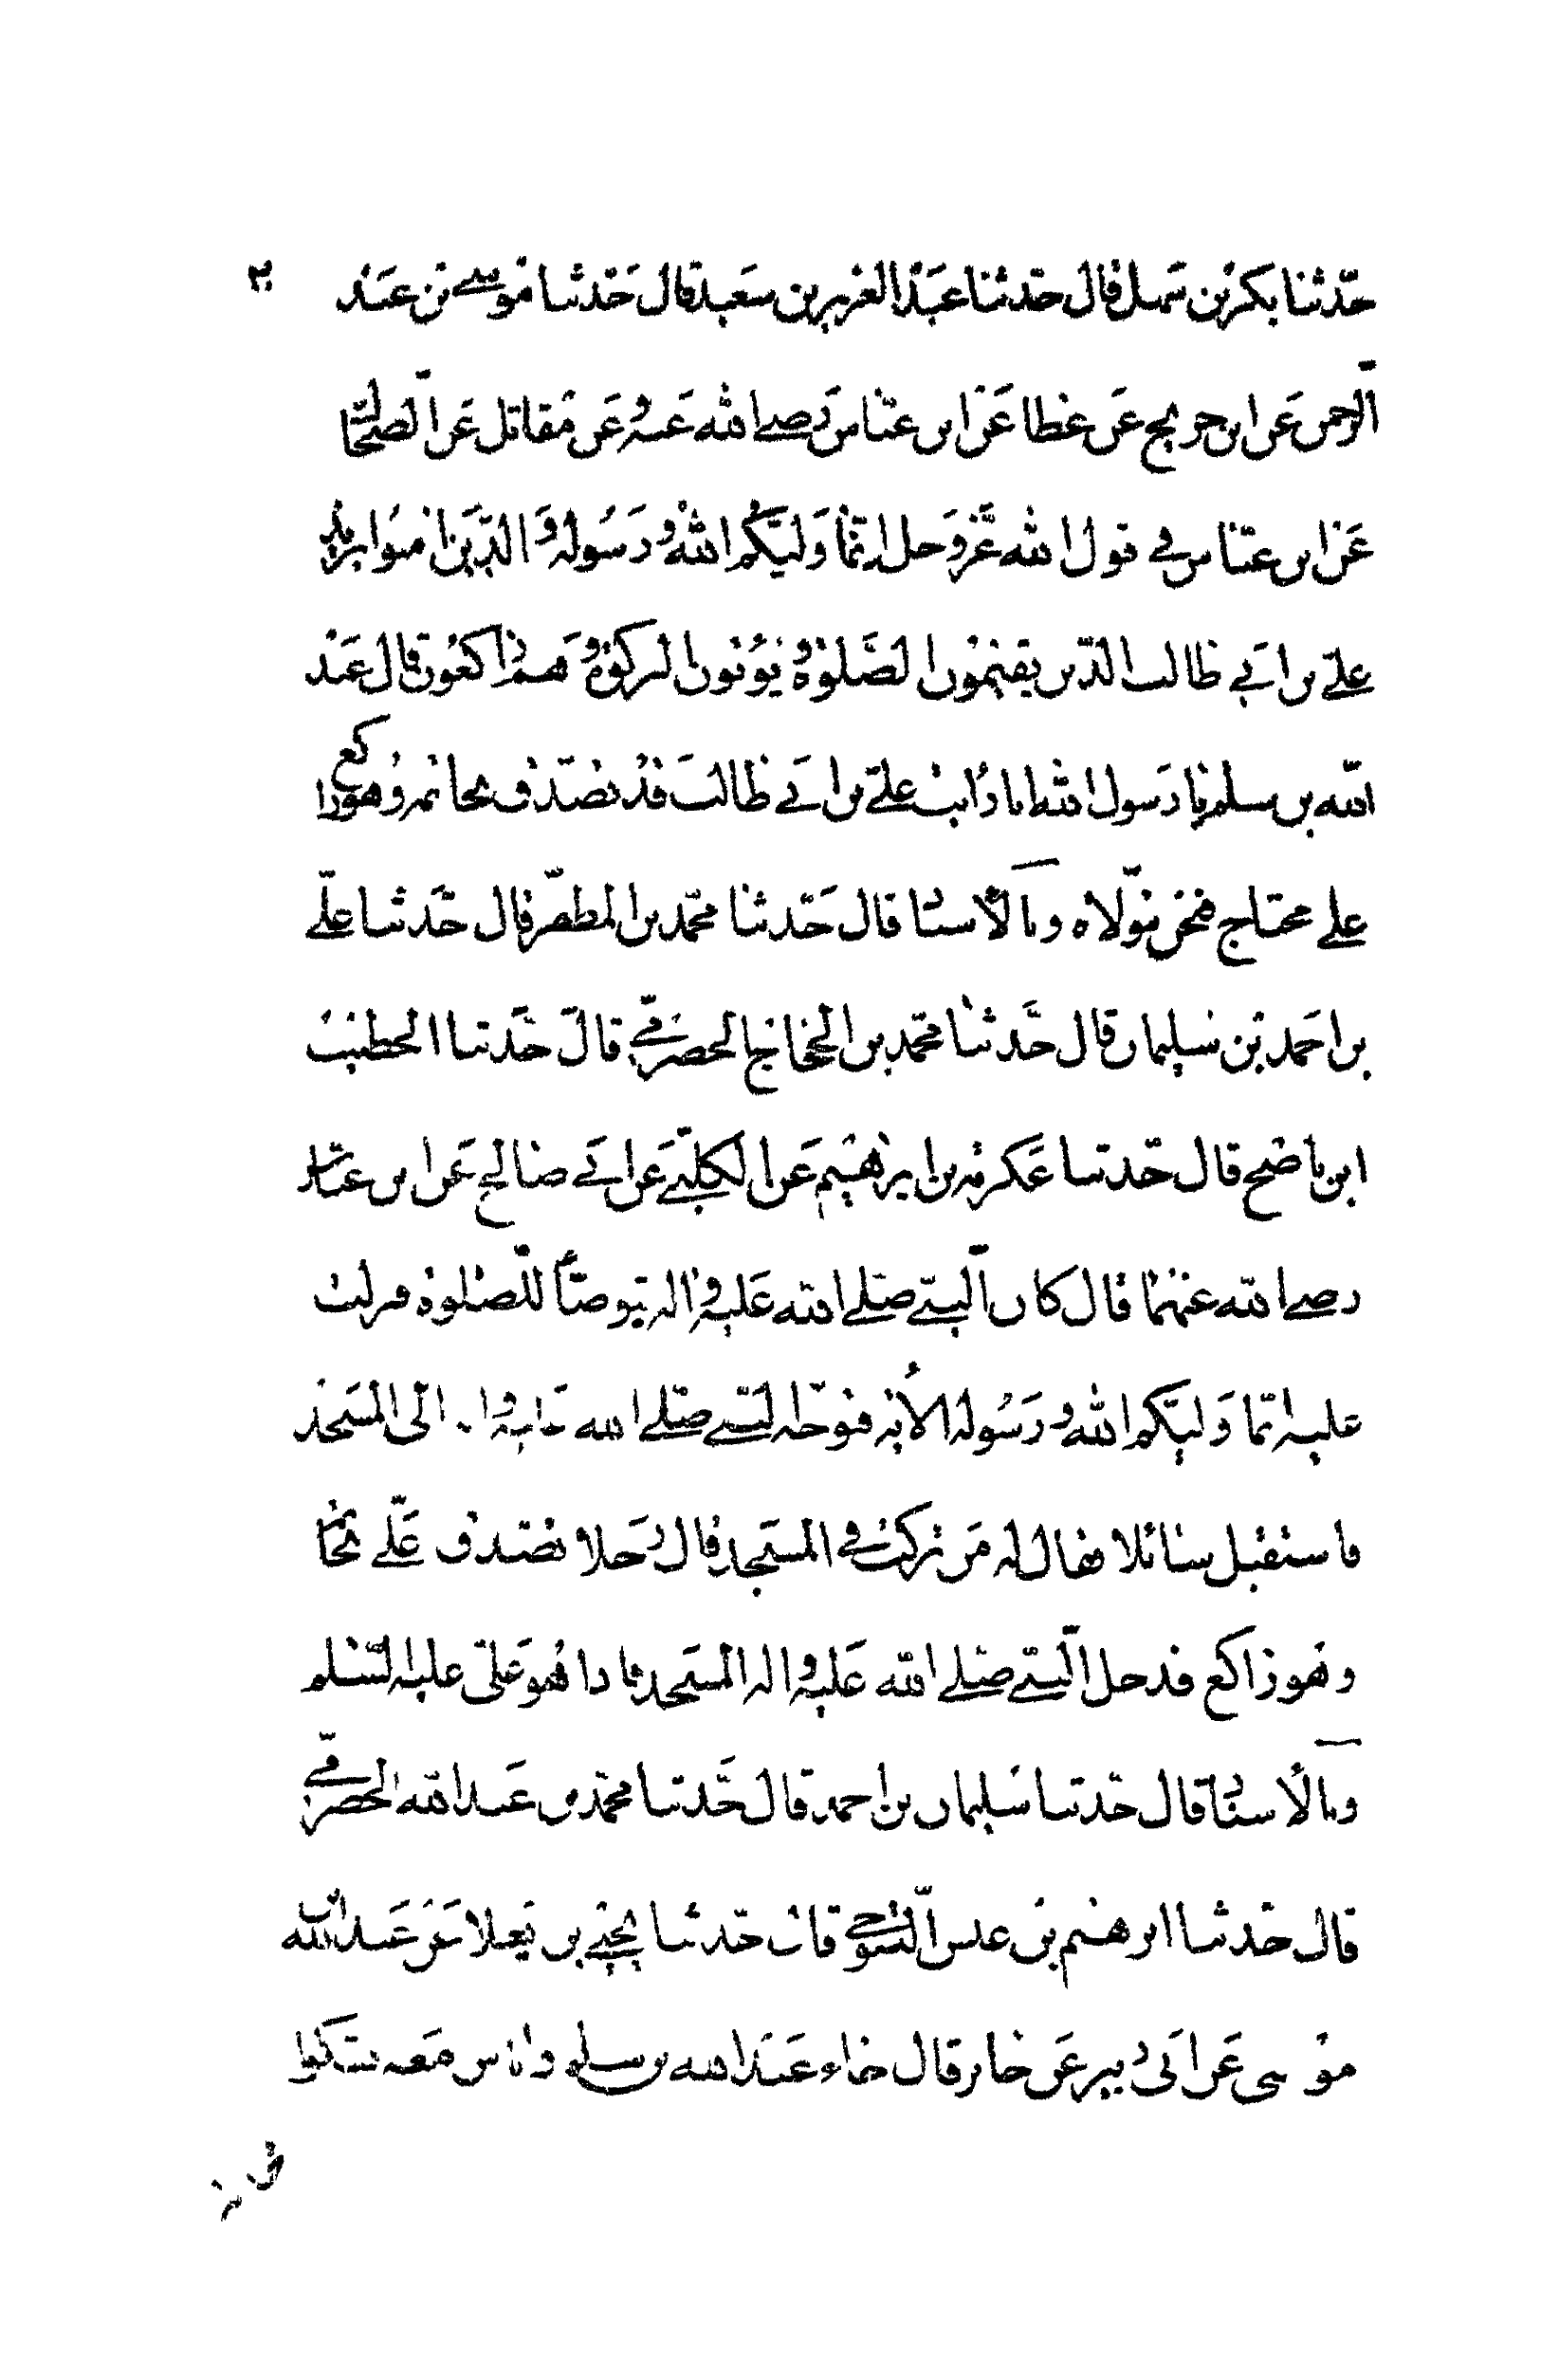 حدّثنا بكر بن سهل قال حدثنا عبد العزيز بن سعيد قال حدثنا موسى بن عبد
الرحمن عن ابن جريج عن عطا عن ابن عبّاس رضى الله عنه وعن مقاتل عن الضحّا
عن ابن عبّاس في قول الله عزّ وجل انّما وليّكم الله ورسوله والّذين امنوا يريد
علىّ بن ابى طالب الّذين يقيمون الصّلوة ويؤتون الزكوة وهم راكعون قال عبد
الله بن سلم يا رسول الله انا رايت علىّ بن ابى طالب قد تصدّق بخاتمه وهو راكع
على محتاج فنحن نتولّاه وبالأسناد قال حدّثنا محمّد بن المظفّر قال حدّثنا علىّ
بن احمد بن سليمان قال حدّثنا محمّد بن الحجّاج الحضرمىّ قال حدّثنا الخطيب
ابن ناصح قال حدّثنا عكرمة بن ابرهيم عن الكلبىّ عن ابى صالح عن ابن عبّاس
رضى الله عنهما قال كان النّبىّ صلّى الله عليه واله يتوضّأ للصّلوة فنزلت
عليه انّما وليّكم الله ورسوله الأية فتوجّه النّبىّ صلّى الله عليه وا الى المسجد
فاستقبل سائلا فقال له من تركت في المسجد قال رجلا تصدّق علىّ بخا
وهو راكع فدخل النّبىّ صلّى الله عليه واله المسجد فاذا هو علىّ عليه السّلم
وبالأسناد قال حدّثنا سليمان بن احمد قال حدّثنا محمّد بن عبد الله الحضرمىّ
قال حدّثنا ابرهيم بن عيسى التنوخىّ قال حدّثنا يحيى بن يعلا عن عبيد الله ابن
موسى عن ابى الزبير عن جابر قال جاء عبد الله بن سلم واناس معه يشكوا